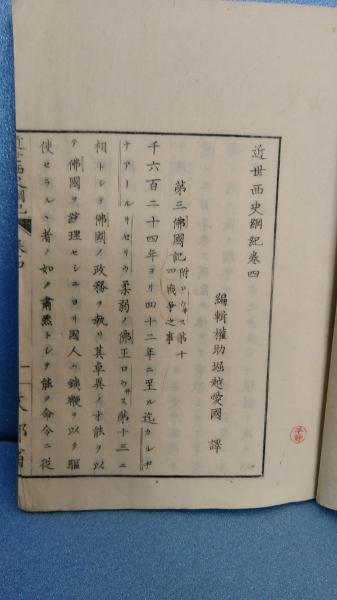 近世西史綱紀卷四
編輯權助堀越愛國 譯
第三佛國記附ローウ*ス第十
四戰爭之事
千六百二十四年ヨリ四十二年ニ至ル迄カルヂ
ナアールリセリウ柔弱ノ佛王ローウ*ス第十三ニ
相トシテ佛國ノ政務ヲ執リ其卓異ノ才能ヲ以
テ佛國ヲ辨理セシニヨリ國人ハ鐵鞭ヲ以テ驅
使セラルヽ者ノ如ク肅然トシテ能ク命令ニ從
近世西史綱紀 卷四
一 文部省